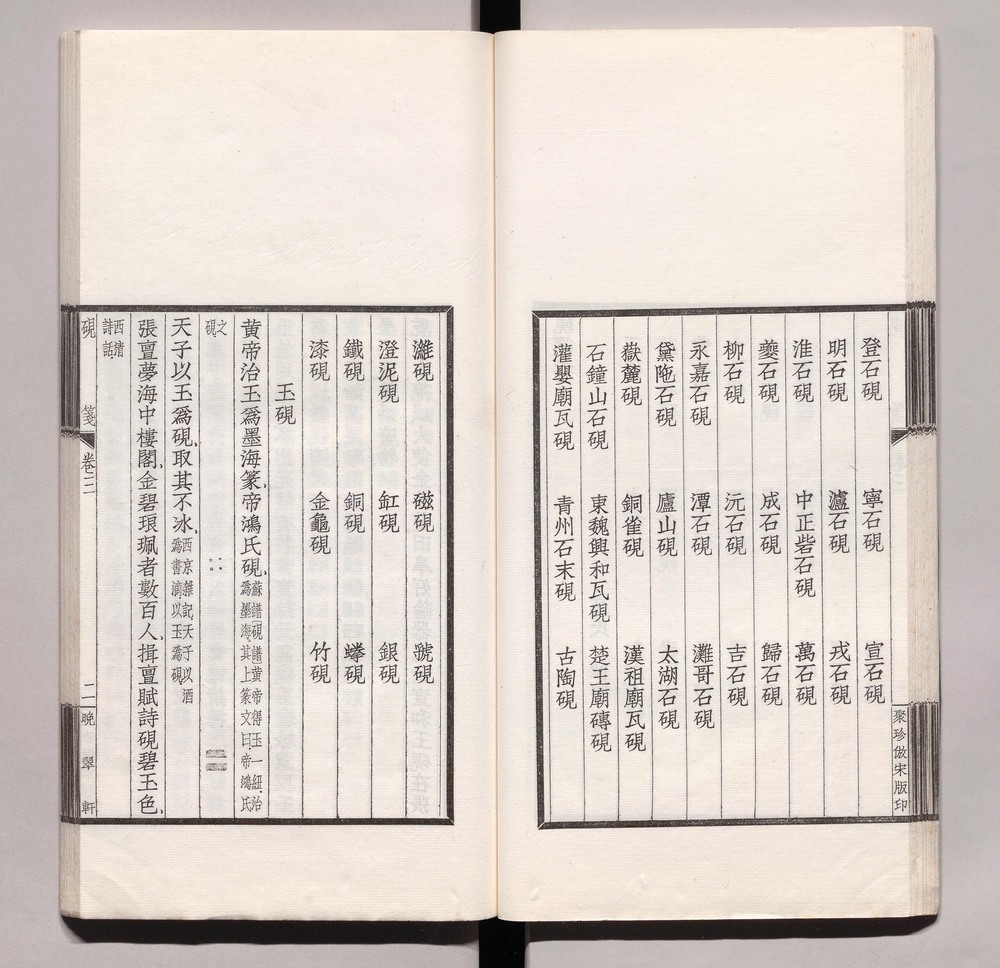 登石硯 寧石硯 宣石硯
明石硯 瀘石硯 戎石硯
淮石硯 中正砦石硯 萬石硯
夔石硯 成石硯 歸石硯
柳石硯 沅石硯 吉石硯
永嘉石硯 潭石硯 灘哥石硯
黛陁石硯 廬山硯 太湖石硯
嶽麓硯 銅雀硯 漢祖廟瓦硯
石鐘山石硯 東魏興和瓦硯 楚王廟磚硯
灌嬰廟瓦硯 青州石末硯 古陶硯
聚珍倣宋版印
濰硯 磁硯 虢硯
澄泥硯 缸硯 銀硯
鐵硯 銅硯 蟒硯
漆硯 金龜硯 竹硯
玉硯
黄帝治玉爲墨海篆、帝鴻氏硯、蘇譜硯譜黄帝得玉一紐治爲墨海其上篆文曰帝鴻氏
之硯
天子以玉爲硯、取其不冰、西京雜記天子以酒爲書滴以玉爲硯
張亶夢海中樓閣、金碧琅珮者數百人、揖亶賦詩硯碧玉色、
西清詩話
硯 箋 卷三 二 晩翠軒